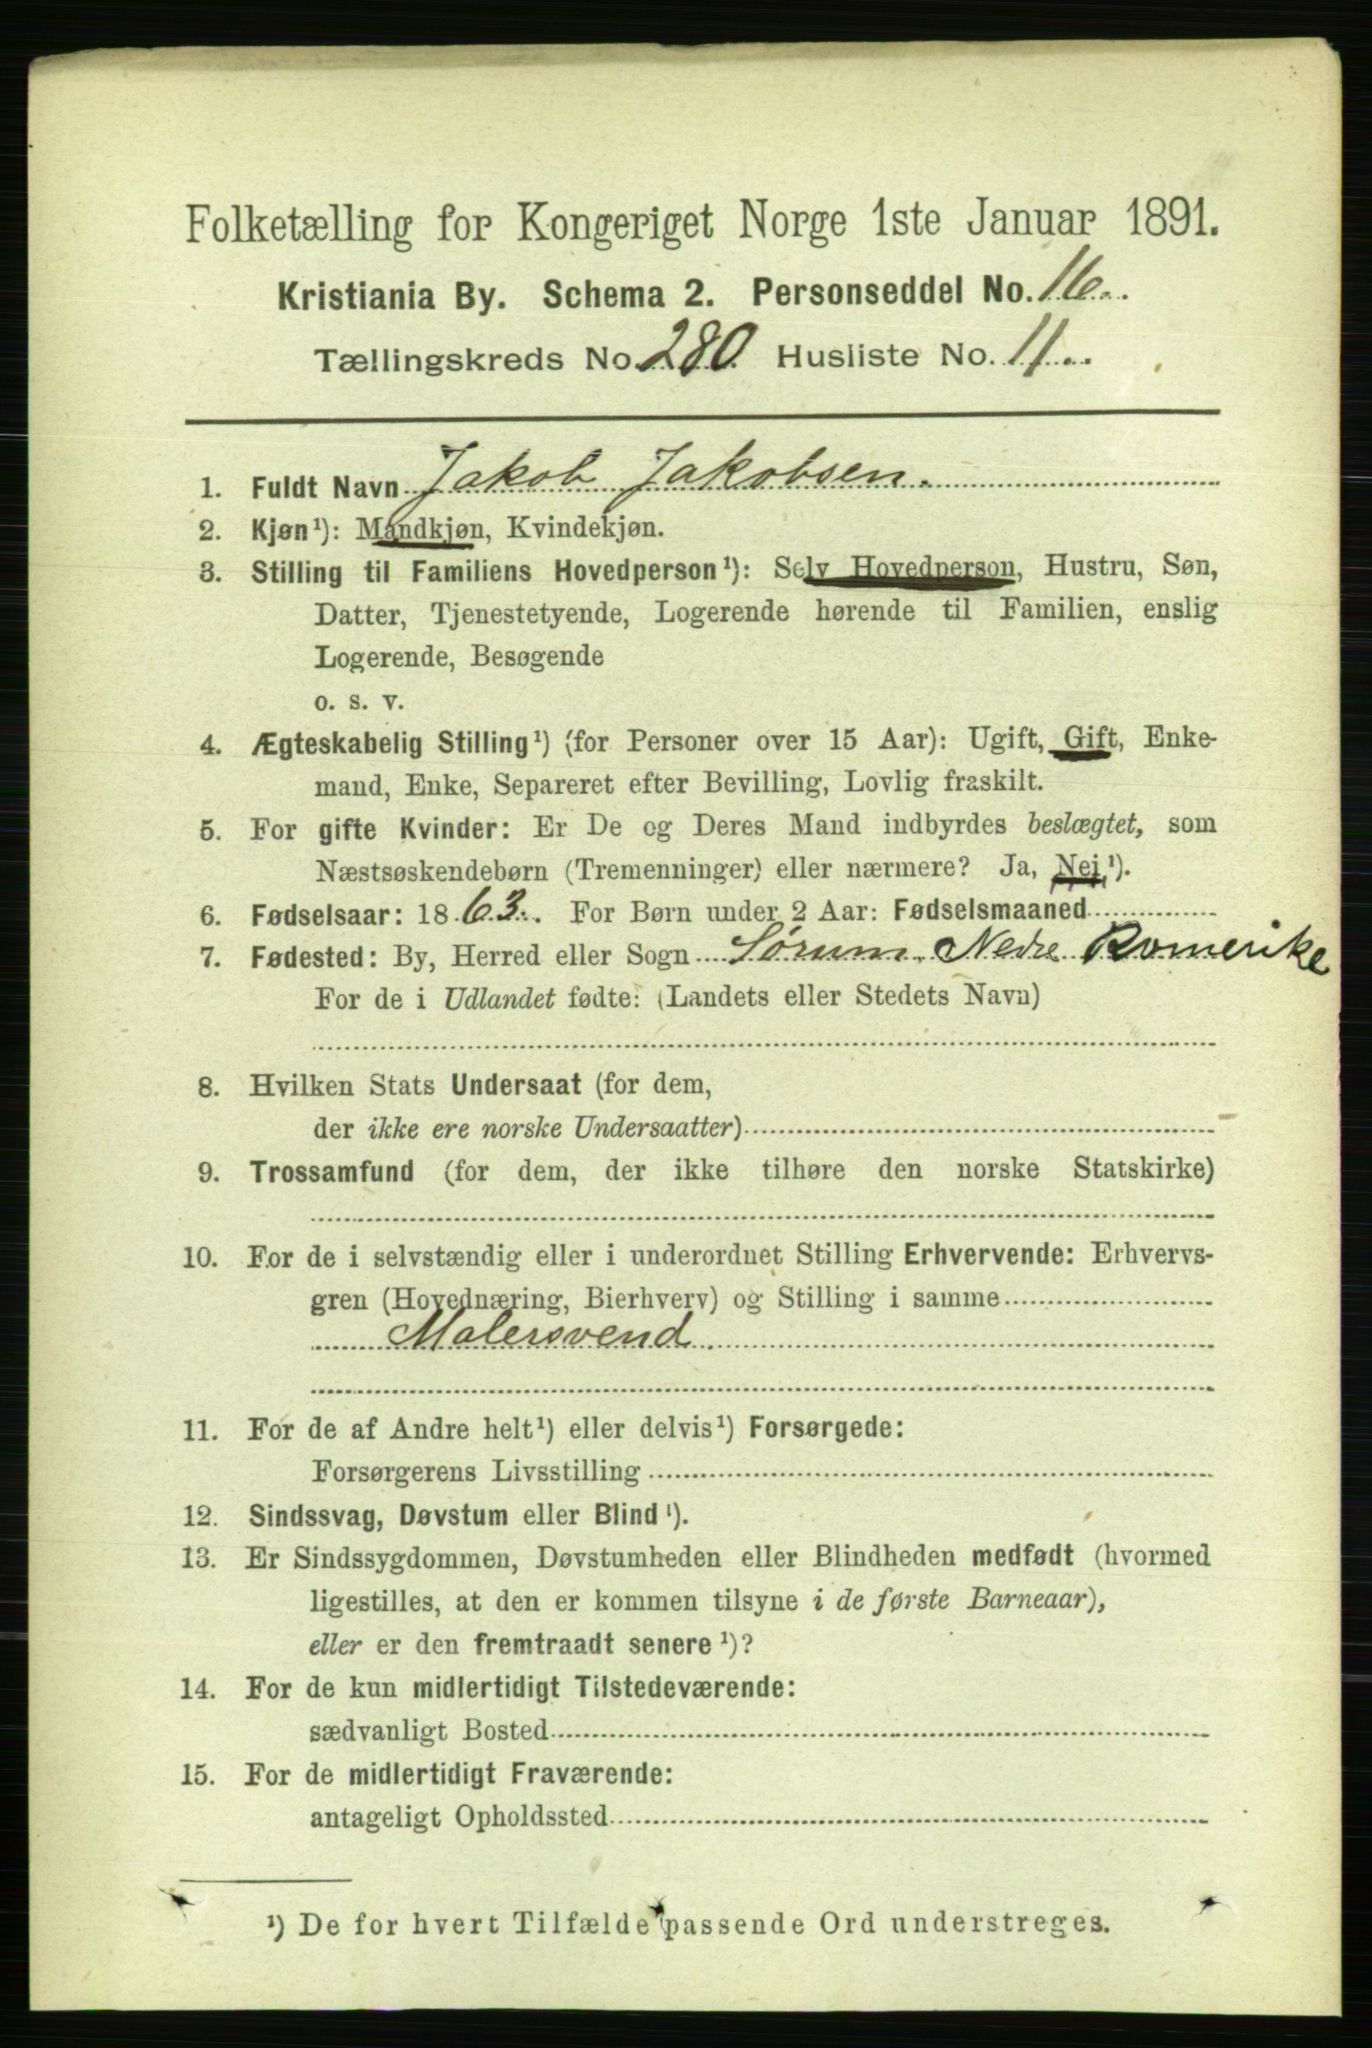 Folketælling for Kongeriget Norge 1ste Januar 1891.
Kristiania By. Schema 2. Personseddel No. 16.
Tællingskreds No. 280 Husliste No. 11.
1. Fuldt Navn Jakob Jakobsen.
2. Kjøn¹): Mandkjøn, Kvindekjøn.
3. Stilling til Familiens Hovedperson¹): Selv Hovedperson, Hustru, Søn,
Datter, Tjenestetyende, Logerende hørende til Familien, enslig
Logerende, Besøgende
o. s. v.
4. Ægteskabelig Stilling¹) (for Personer over 15 Aar): Ugift, Gift, Enke-
mand, Enke, Separeret efter Bevilling, Lovlig fraskilt.
5. For gifte Kvinder: Er De og Deres Mand indbyrdes beslægtet, som
Næstsøskendebørn (Tremenninger) eller nærmere? Ja, Nej,¹).
6. Fødselsaar: 1863. For Børn under 2 Aar: Fødselsmaaned
7. Fødested: By, Herred eller Sogn Sørum, Nedre Romerike
For de i Udlandet fødte: (Landets eller Stedets Navn)
8. Hvilken Stats Undersaat (for dem,
der ikke ere norske Undersaatter)
9. Trossamfund (for dem, der ikke tilhøre den norske Statskirke)
10. For de i selvstændig eller i underordnet Stilling Erhvervende: Erhvervs-
gren (Hovednæring, Bierhverv) og Stilling i samme
Malersvend.
11. For de af Andre helt¹) eller delvis¹) Forsørgede:
Forsørgerens Livsstilling
12. Sindssvag, Døvstum eller Blind¹).
13. Er Sindssygdommen, Døvstumheden eller Blindheden medfødt (hvormed
ligestilles, at den er kommen tilsyne i de første Barneaar),
eller er den fremtraadt senere¹)?
14. For de kun midlertidigt Tilstedeværende:
sædvanligt Bosted
15. For de midlertidigt Fraværende:
antageligt Opholdssted
¹) De for hvert Tilfælde passende Ord understreges.